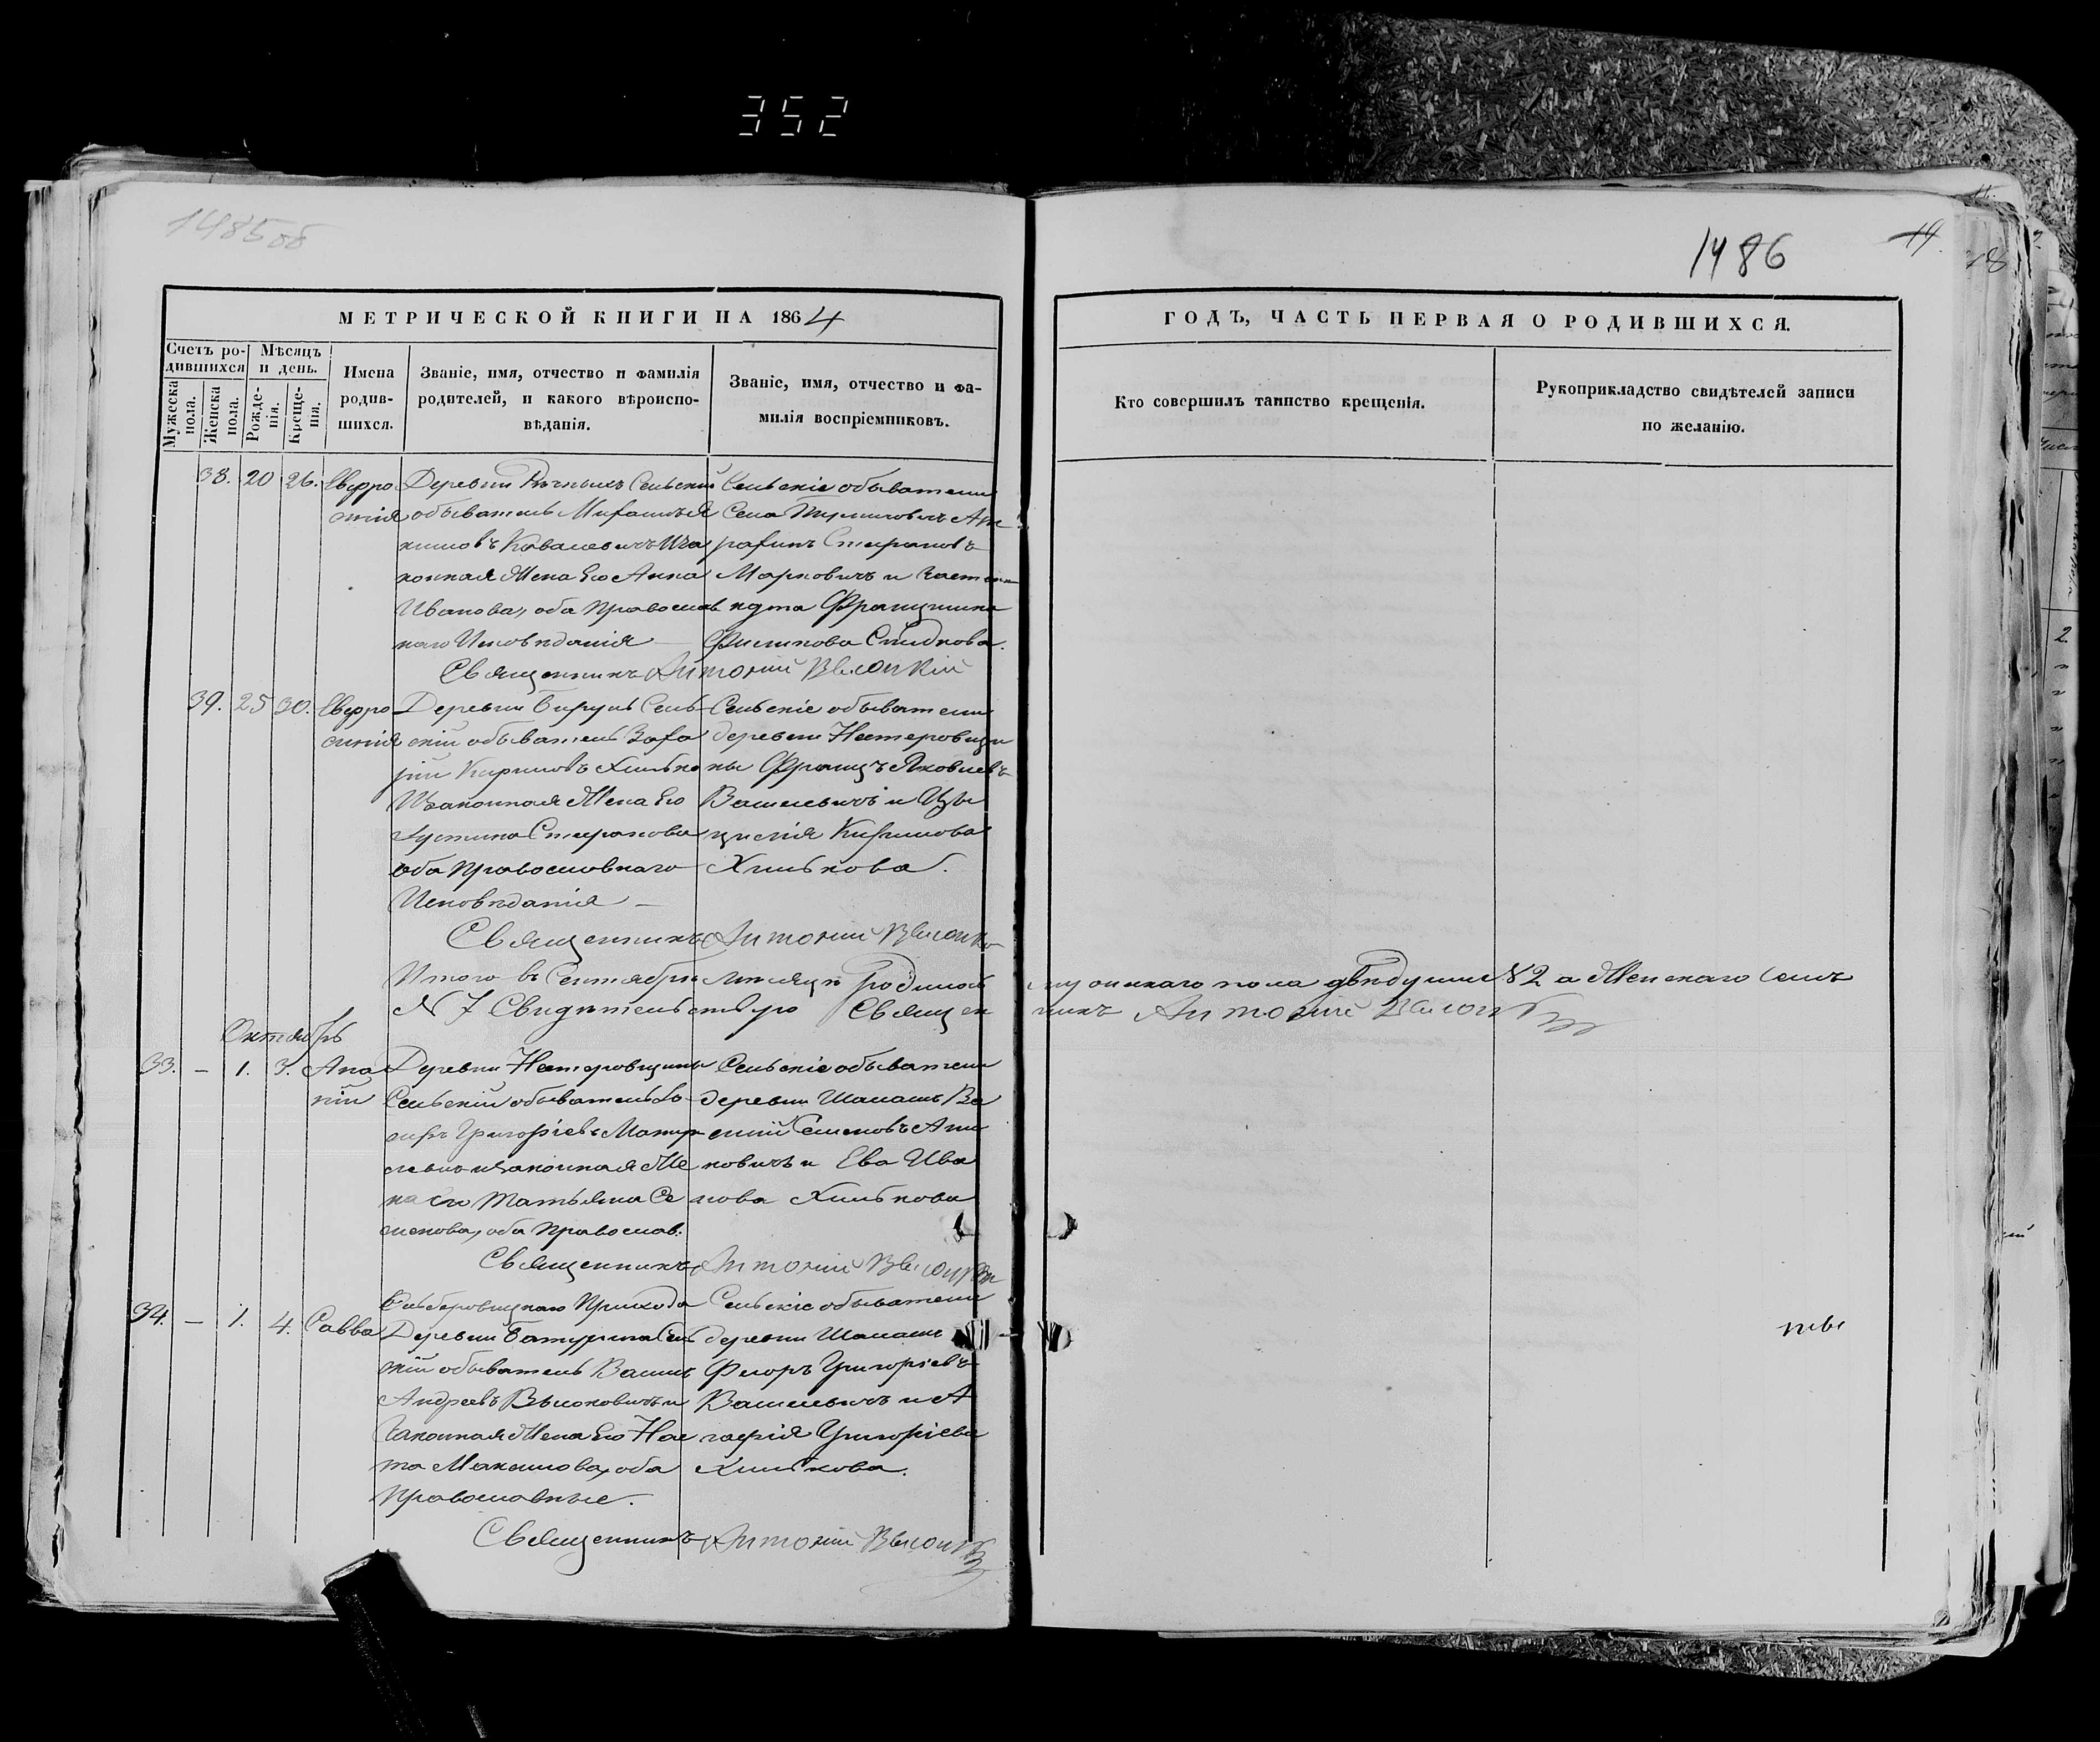 352
1485об
1486
19
18
МЕТРИЧЕСКОЙ КНИГИ НА 1864
ГОДЪ, ЧАСТЬ ПЕРВАЯ О РОДИВШИХСЯ.
Счетъ ро-
дившихся
Мѣсяцъ
и день.
Мужеска
пола.
Женска
пола.
Рожде-
нія.
Креще-
нія.
Имена
родив-
шихся.
Званіе, имя, отчество и фамилія
родителей, и какого вѣроиспо-
вѣданія.
Званіе, имя, отчество и фа-
милія воспріемниковъ.
Кто совершилъ таинство крещенія.
Рукоприкладство свидѣтелей записи
по желанію.
38. 20 26. Евфро
синія
Деревни Сельскій
обыватель
Ковалевичъ и за
конная Жена Его Анна
Иванова, оба Православ
наго Исповѣданія
Сельскіе обыватели
Села
Стефановъ
Марковичъ и
Филипова
Священникъ Антоній Высоцкій
39. 25 30. Евфро
синія
Деревни Сель
скій обыватель Заха
рій Кириловъ Хилько
и законная Жена Его
Устина Стефанова
оба Православнаго
Исповѣданія
Сельскіе обыватели
деревни Нестеровщи
ны Францъ Яковлевъ
Василевичъ и
Кирилова
Хилькова.
Священникъ Антоній Высоцкі
Итого въ Сентябрѣ мѣсяцѣ родилось мужскаго пола двѣ души № 2 а Женскаго семь
№ 7 Свидѣтельствую Священникъ Антоній Высоцкій
Октябрь
33. — 1. 3. Ана
ній
Деревни Нестеровщины
Сельскій обыватель Іо
сифъ Григорієвъ
и законная Же
на его Татьяна Се
менова, оба Православ.
Сельскіе обыватели
деревни Шалашъ Ва
силій Семеновъ
новичъ и Ева Ива
нова Хилькова
Священникъ Антоній Высоцкій
34. — 1. 4. Савва
Прихода
Деревни Батурина Сель
скій обыватель Василь
Андреевъ и
законная Жена Его Нас
та Максимова, оба
Православные.
Сельскіе обыватели
деревни Шалашъ
Флоръ Григорієвъ
Василевичъ и А
гафія Григорієва
Хилькова.
Священникъ Антоній Высоцкій